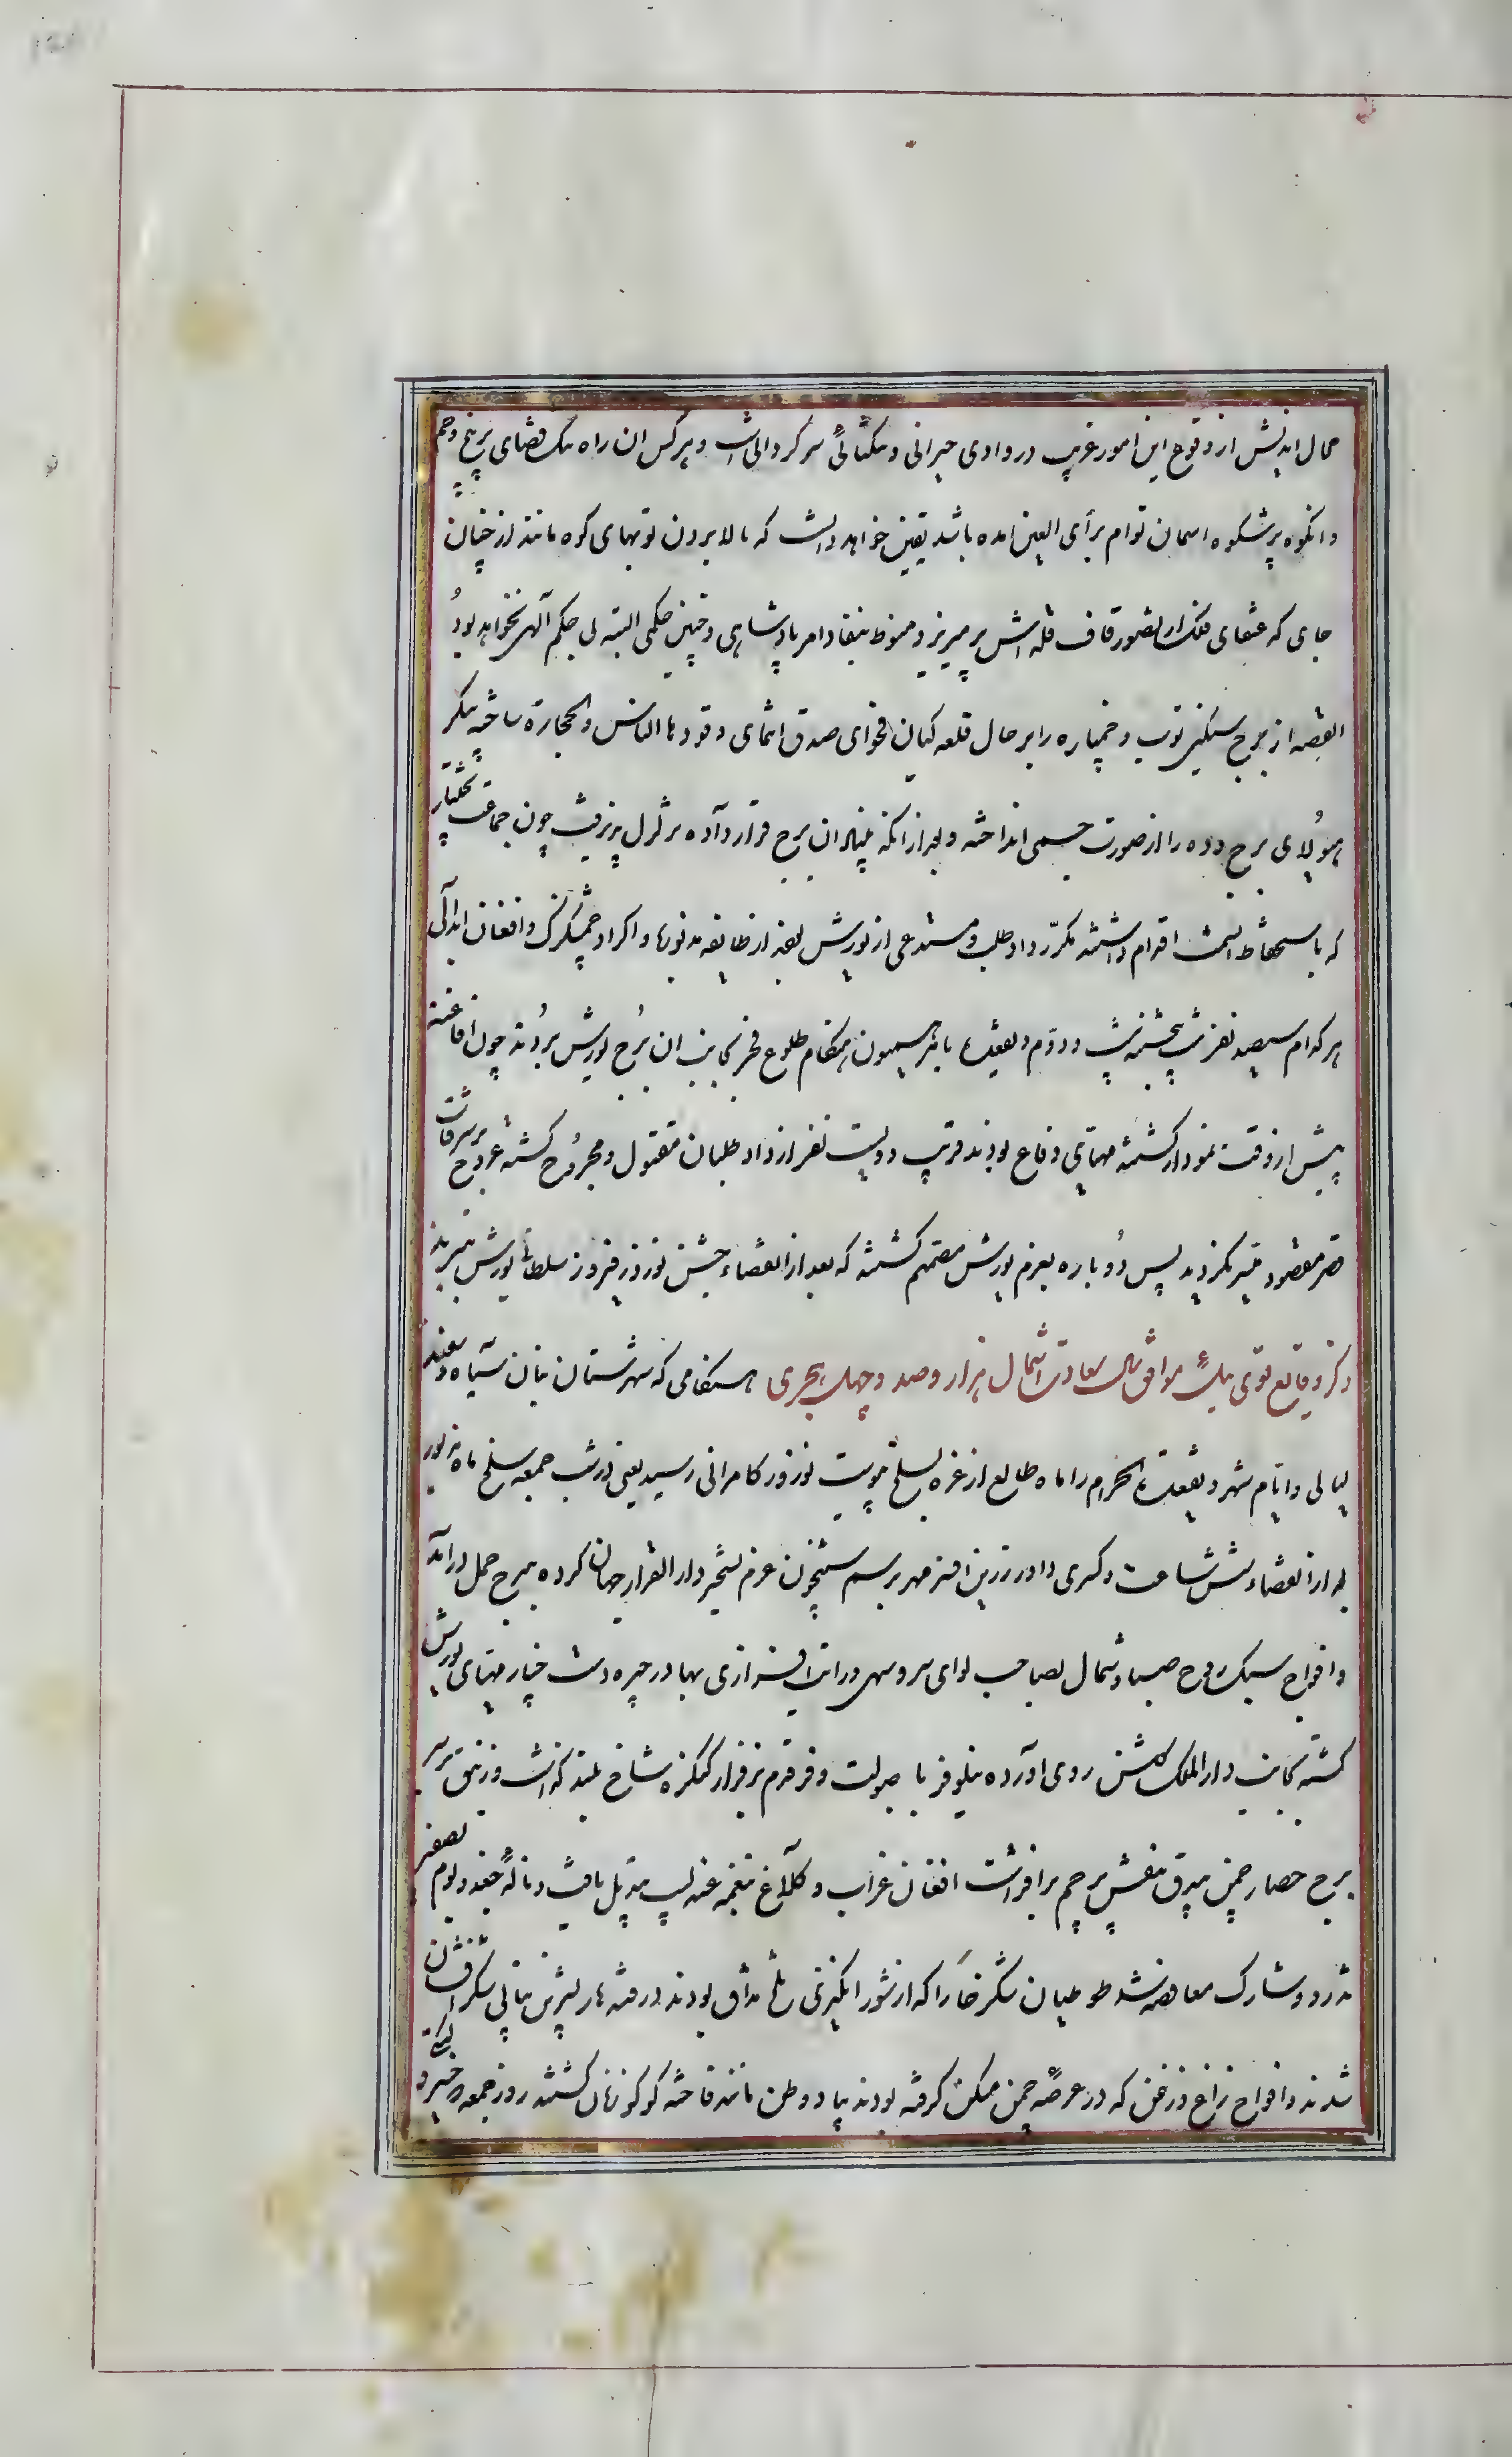 محال اندیش از وقوع این امور غریب در وادی حیرانی و یکتائی سرکردانی است و هر کس ان راه تنک فضای پر پیچ و خم
و انکوه پرشکوه اسمان توام برأی العین امده باشد یقین خواهد دانست که بالا بردن توبهای کوه مانند از چنان
جای که عنقای فلک از تصور قاف قله اش پر میریزد منوط بنفاد امر پادشاهی و چنین حکمی البته بی حکم آلهی نخواهد بود
القصه از برج سنکین توپ و خمپاره را بر حال قلعه کیان فحوای صدق انتمای وقودها الناس و الحجارة ساخته پیکر
هیولای برج دده را از صورت جسمی انداخته و بعد از انکه بنیان ان برج قرار داده تزلزل پذیرفت چون جماعت بختیار
که باستحفاظ انسمت اقدام داشتند مکرّر داوطلب و مستدعی از یورش بعضی از طایفه مذبوره و اکراد چمشکزک و افغان ابدالی
هر کدام سیصد نفر شب پنجشنبه دویّم ذیقعده بامر همیون هنکام طلوع فجر بجانب ان برج یورش بردند چون افاغنه
پیش از وقت نمودار کشته مهیای دفاع بودند قریب دویست نفر از داوطلبان مقتول و مجروح کشته عروج بر شرفات
قصر مقصود میّسر نکردید پس دوباره بعزم یورش مصمّم کشته که بعد از انقضاء جشن نوروز فیروز سلطانی یورش ببرند
ذکر وقایع قوی ئیل موافق سال سعادت اشتمال هزار و صد و چهل هجری هنکامی که شهرستان نبان سیاه و سفید
لیالی و ایّام شهر ذیقعدة الحرام را ماه طالع از غره بسلخ نوبت نوروز کامرانی رسید یعنی در شب جمعه سلخ ماه مذبور
بعد از انقضاء شش ساعت و کسری داور زرین افسر مهر برسم شبیخون عزم تسخیر دار القرار جهان کرده ببرج حمل درآمد
و افواج سبک روح صبا و شمال بصاحب لوای سرو سهی و رایت افرازی بهادر چیره دست چنار مهیای یورش
کشته بجانب دار الملک کلشن روی اورده نیلوفر با صولت و فر قدم بر فراز کنکره شاخ بلند کذاشت و زنبق بر سر
برج حصار چمن بیرق بنفش پرچم برافراشت افغان غراب و کلاغ بنغمه عندلیب تبدیل یافت و ناله جغد و بوم بصفیر
تذرو و سارک معاوضه شد طوطیان شکرخا را که از شور انکیزی تلخ مذاق بودند در قندهار بشیرین بیانی شکرافشان
شدند و افواج زاغ و زغن که در عرصه چمن ممکن کرفته بودند بیاد وطن مانند فاخته کوکو زنان کشتند روز جمعه دیکر